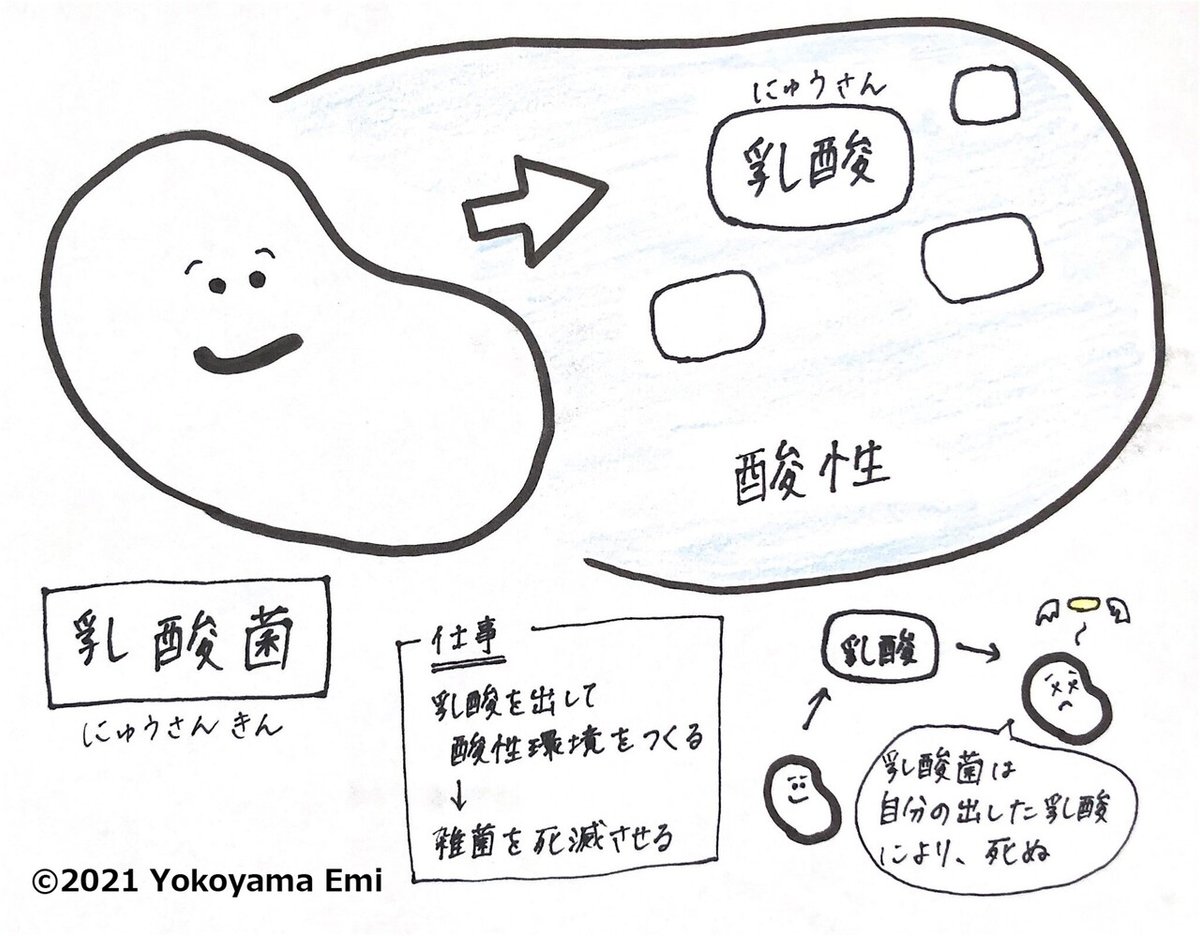 にゅうさん
乳酸
酸性
乳酸菌
にゅうさんきん
仕事
乳酸を出して
酸性環境をつくる
↓
雑菌を死滅させる
乳酸
乳酸菌は
自分の出した乳酸
により、死ぬ
©2021 Yokoyama Emi